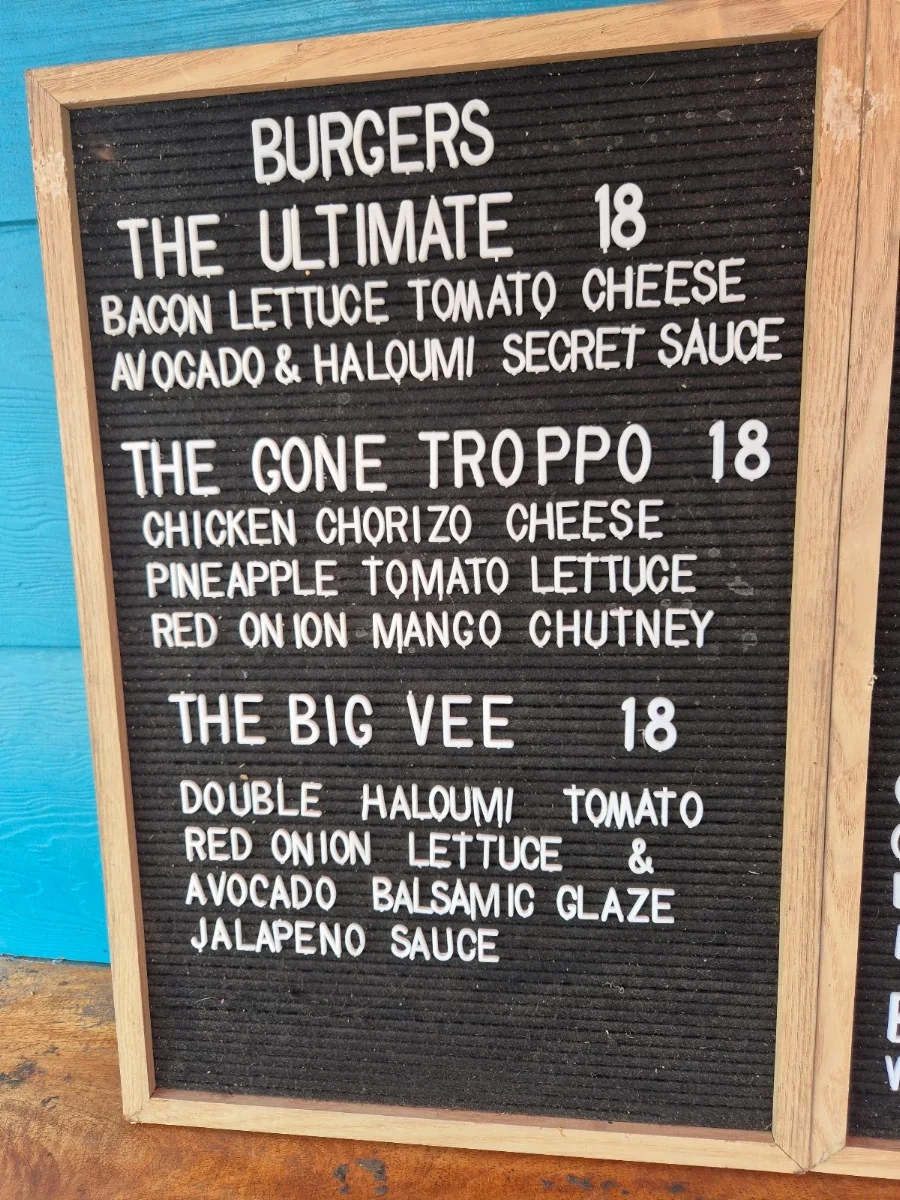 BURGERS
THE ULTIMATE 18
BACON LETTUCE TOMATO CHEESE
AVOCADO & HALOUMI SECRET SAUCE
THE GONE TROPPO 18
CHICKEN CHORIZO CHEESE
PINEAPPLE TOMATO LETTUCE
RED ONION MANGO CHUTNEY
THE BIG VEE 18
DOUBLE HALOUMI TOMATO
RED ONION LETTUCE &
AVOCADO BALSAMIC GLAZE
JALAPENO SAUCE